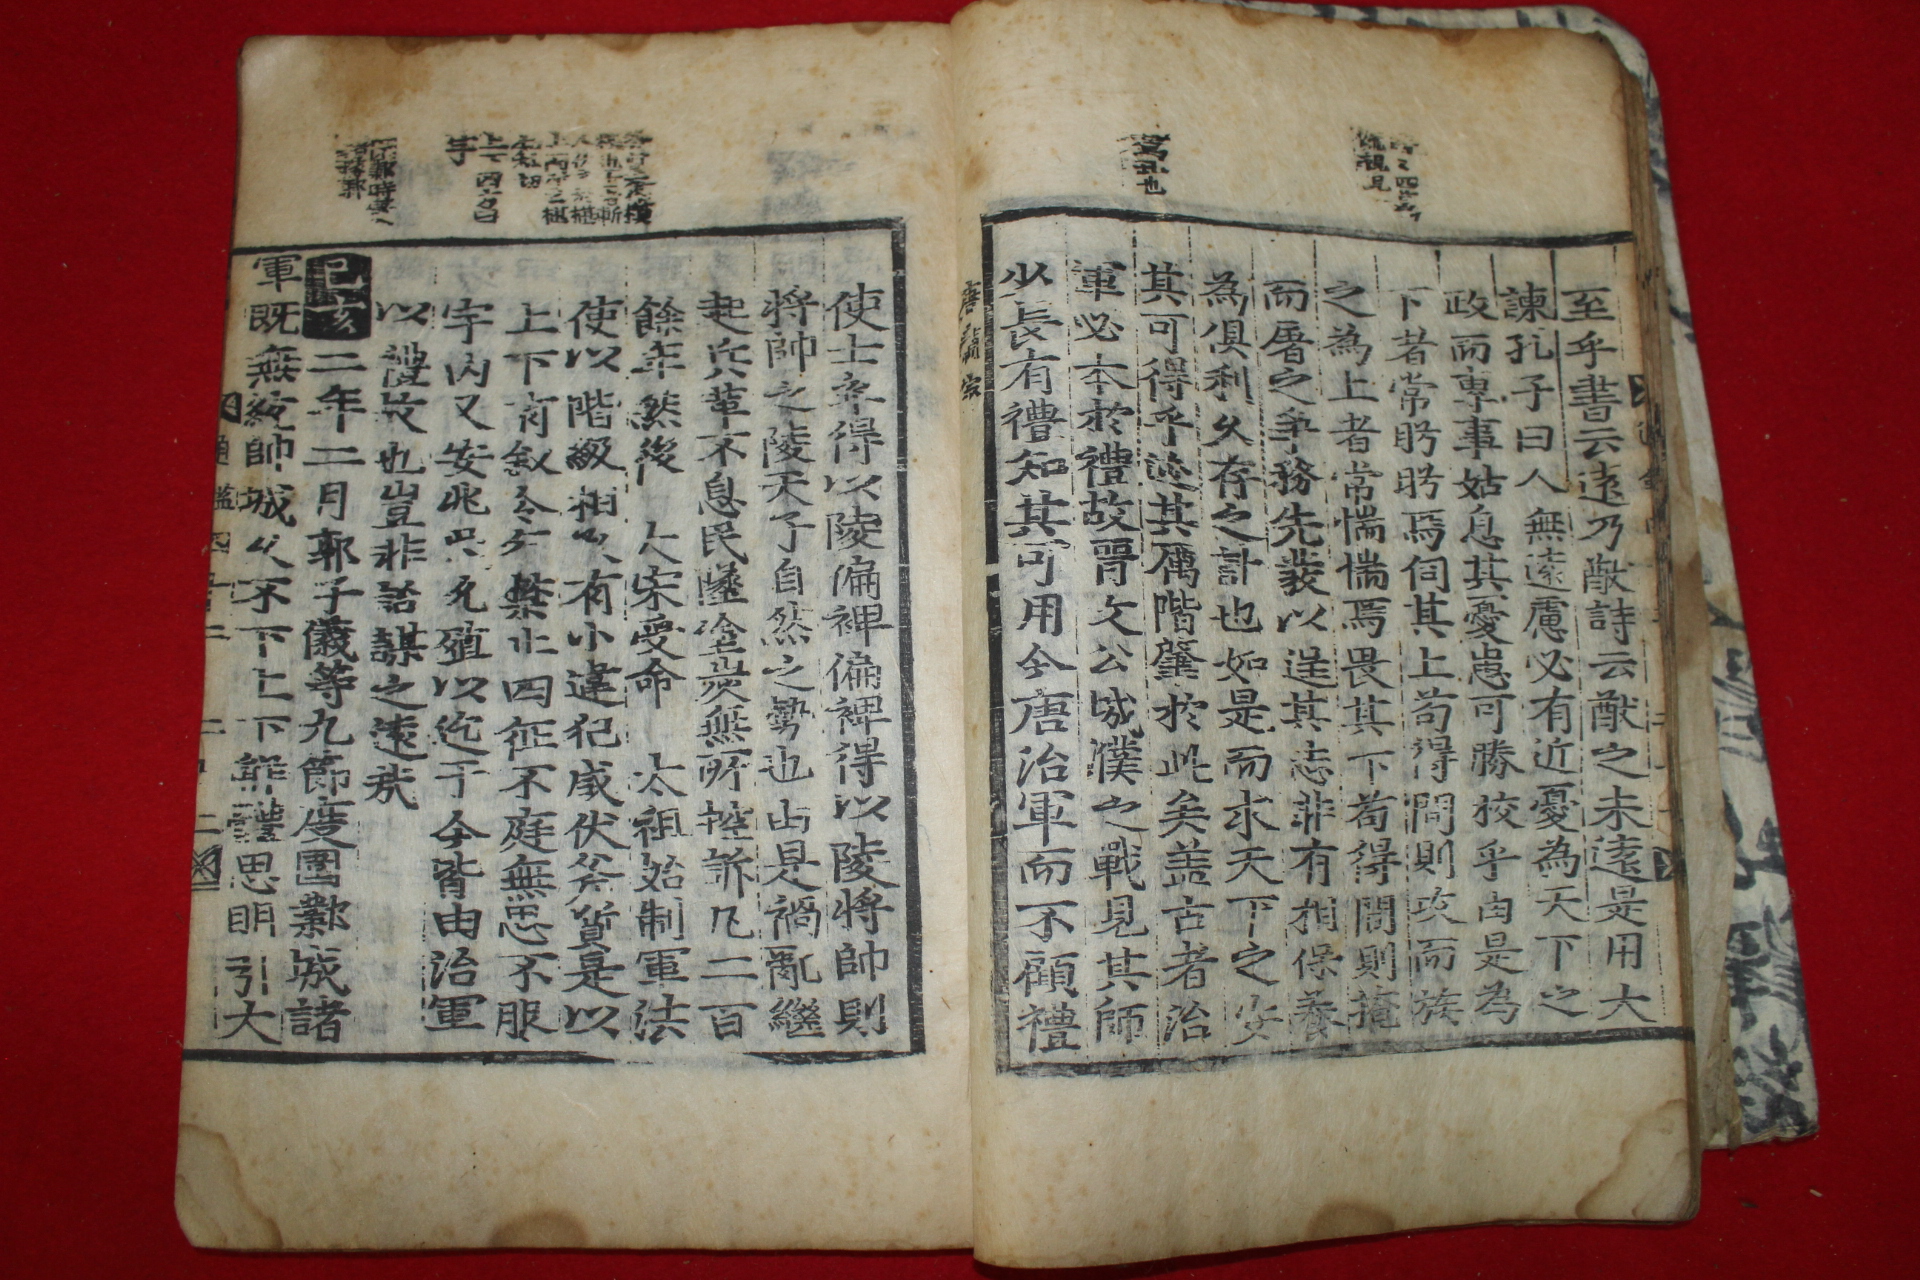 至乎書云遠乃猷詩云猷之未遠是用大
諫孔子曰人無遠慮必有近憂為天下之
政而專事姑息其憂患可勝校乎由是為
下者常眄眄焉伺其上苟得間則攻而族
之為上者常惴惴焉畏其下苟得間則掩
而屠之爭務先發以逞其志非有相保養
為俱利久存之計也如是而求天下之安
其可得乎迹其厲階肇於此矣盖古者治
軍必本於禮故晉文公城濮之戰見其師
少長有禮知其可用今唐治軍而不顧禮
唐肅宗
使士卒得以陵偏裨偏裨得以陵將帥則
將帥之陵天子自然之勢也由是禍亂繼
起兵革不息民墜塗炭無所控訴凡二百
餘年然後 大宋受命 太祖始制軍法
使以階級相承有小違犯咸伏斧質是以
上下有叙令行禁止四征不庭無思不服
宇內又安兆民允殖以迄于今皆由治軍
以禮故也豈非詒謀之遠哉
己亥二年二月郭子儀等九節度圍鄴城諸
軍既無統帥城久不下上下解體思明引大